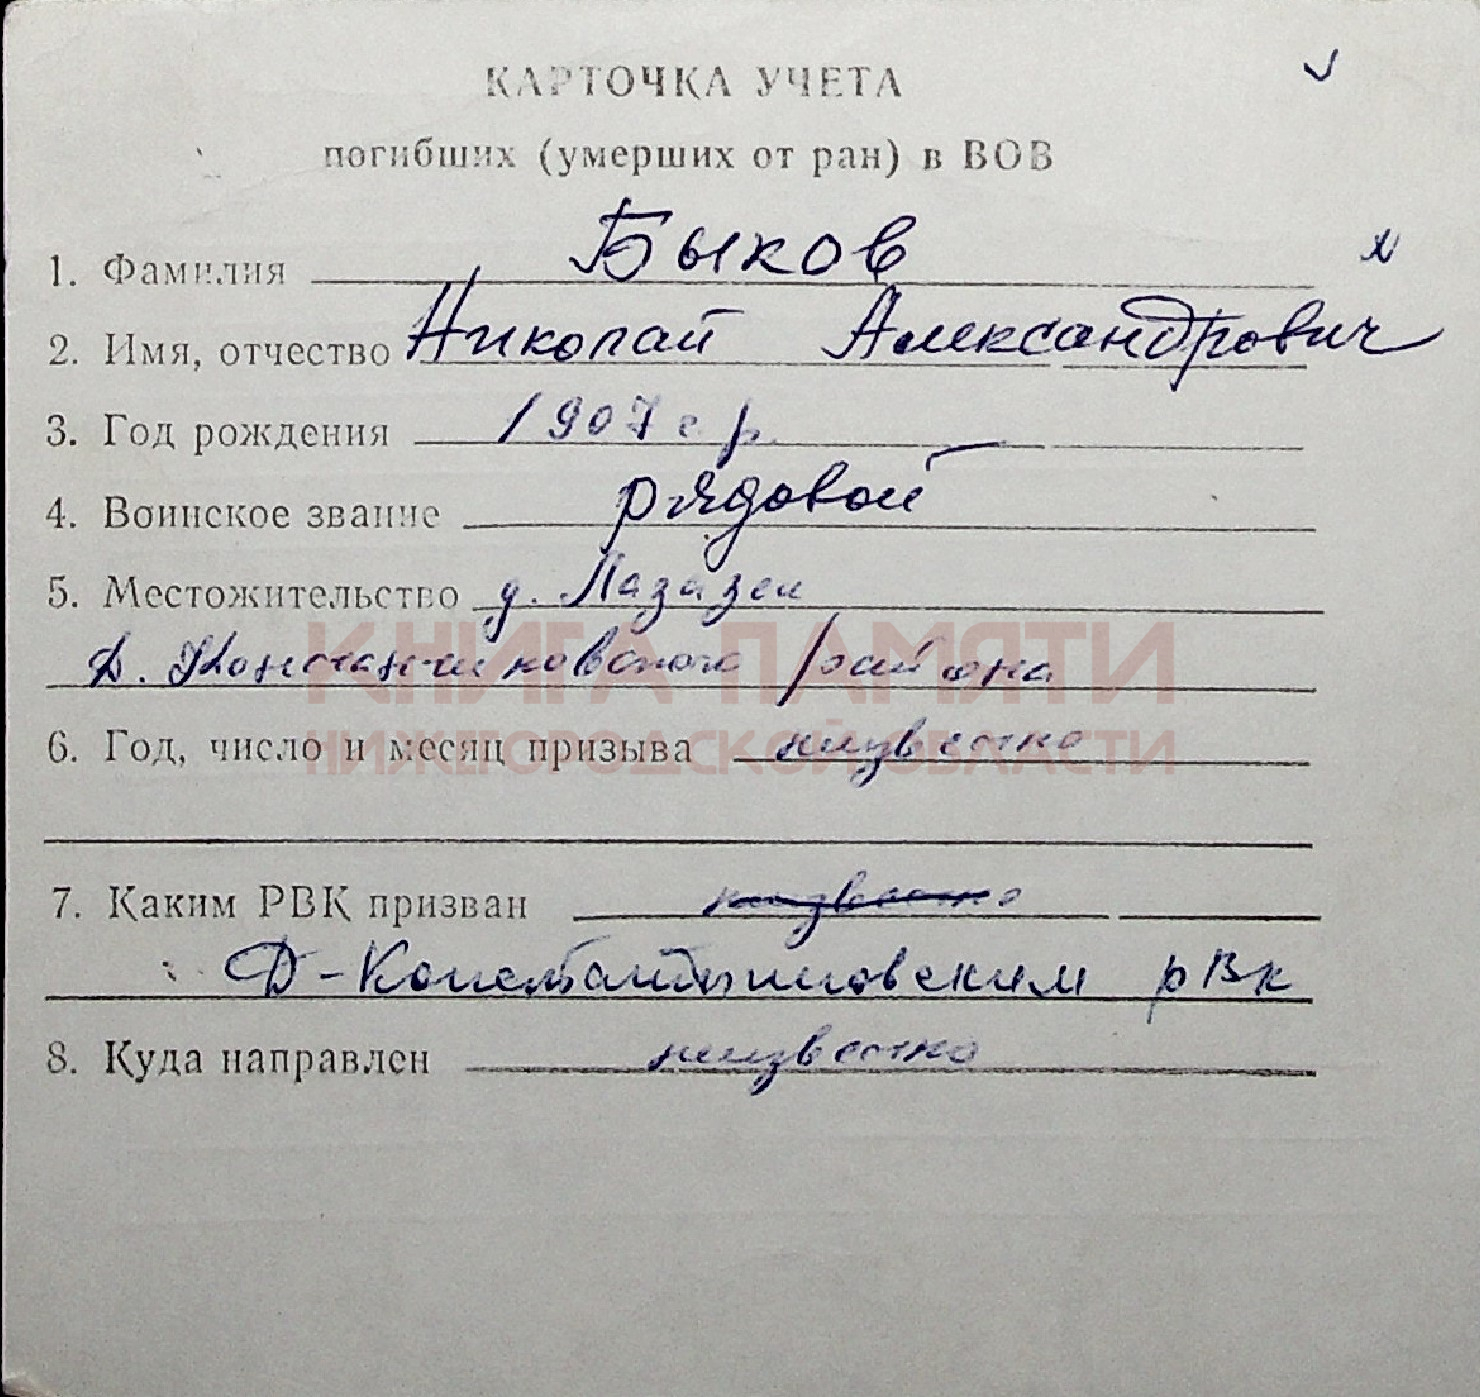 КАРТОЧКА УЧЕТА
погибших (умерших от ран) в ВОВ
1. Фамилия Быков
2. Имя, отчество Николай Александрович
3. Год рождения 1907 г. р.
4. Воинское звание рядовой
5. Местожительство д. Лазазеи
Д. Константиновского района
КНИГА ПАМЯТИ
НИЖЕГОРОДСКОЙ ОБЛАСТИ
6. Год, число и месяц призыва неизвестно
7. Каким РВК призван неизвестно
Д-Константиновским рвк
8. Куда направлен неизвестно